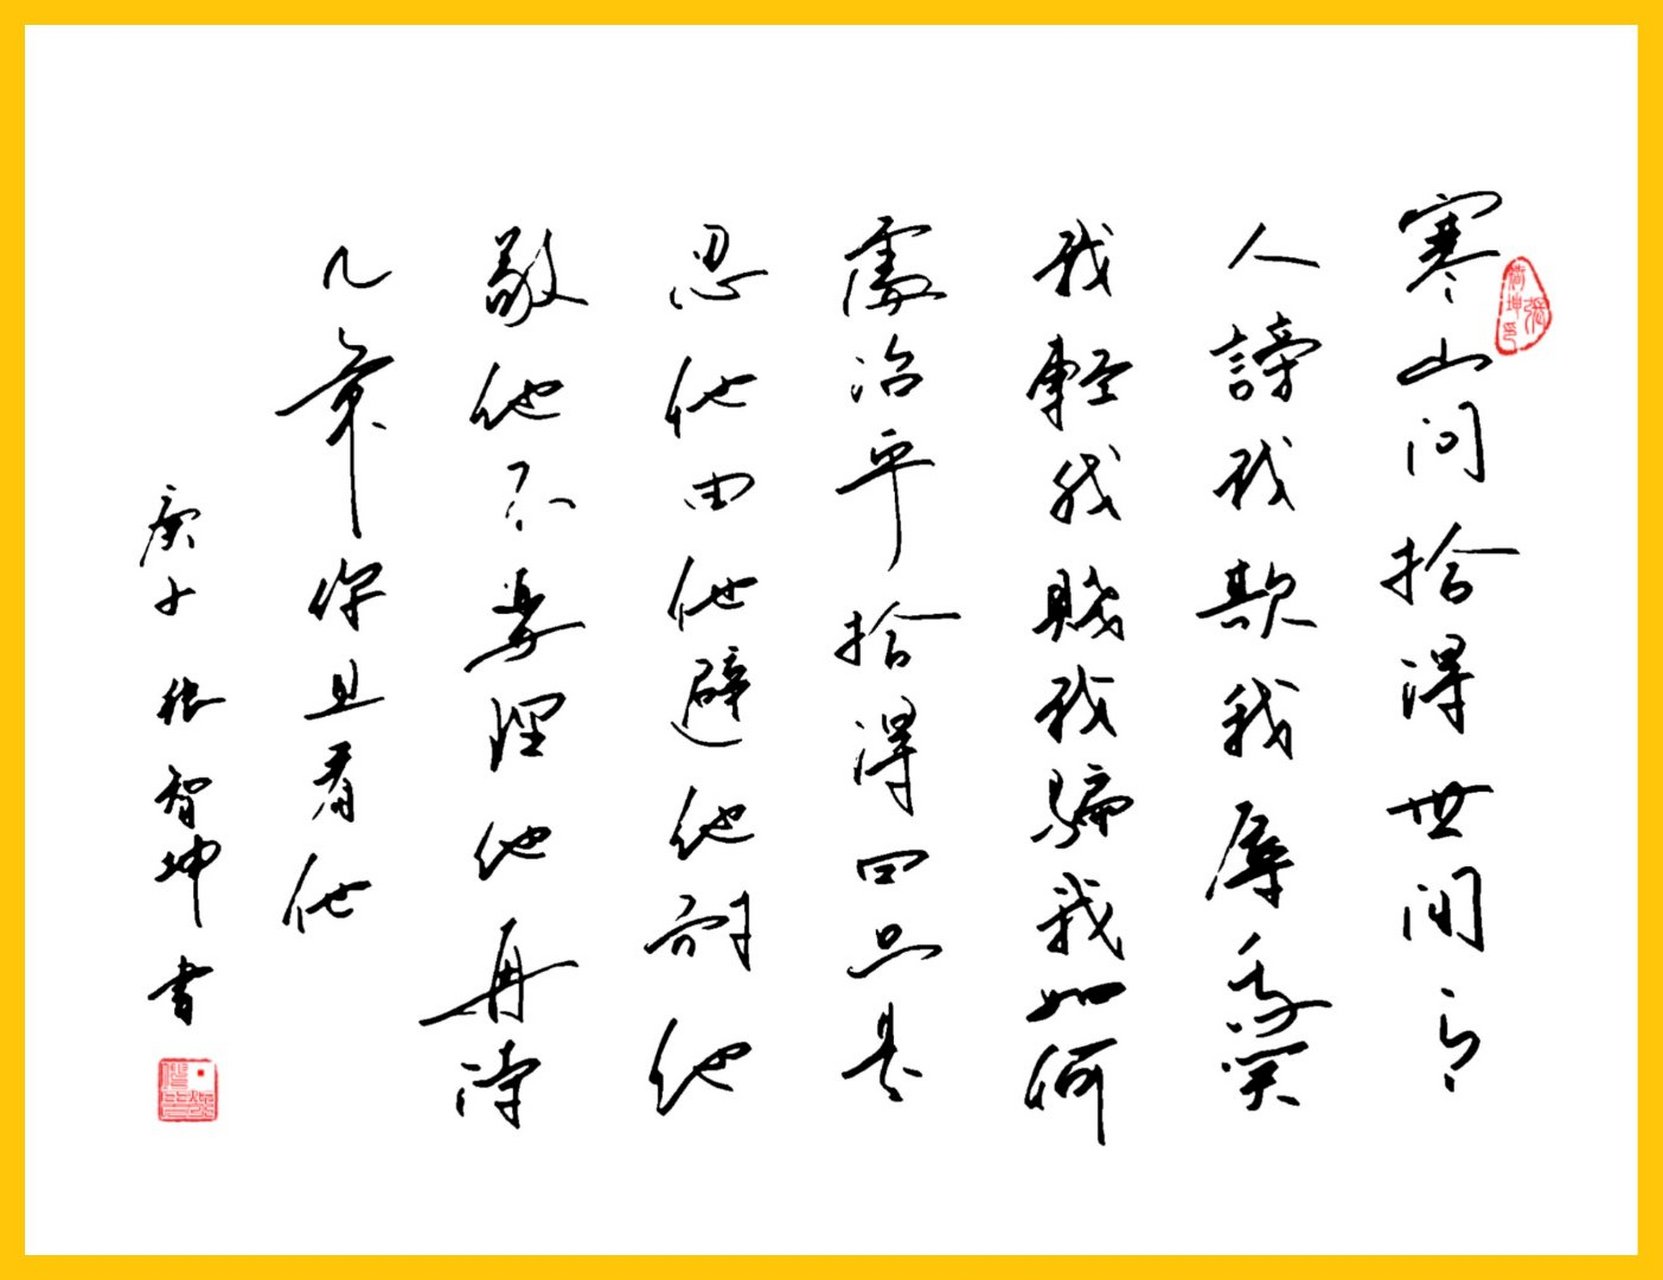 寒山问拾得世间有
人謗我欺我辱我笑
我軽我賤我騙我如何
處治乎拾得曰只是
忍他由他避他耐他
敬他不要理他再待
几年你且看他
庚子張智坤書